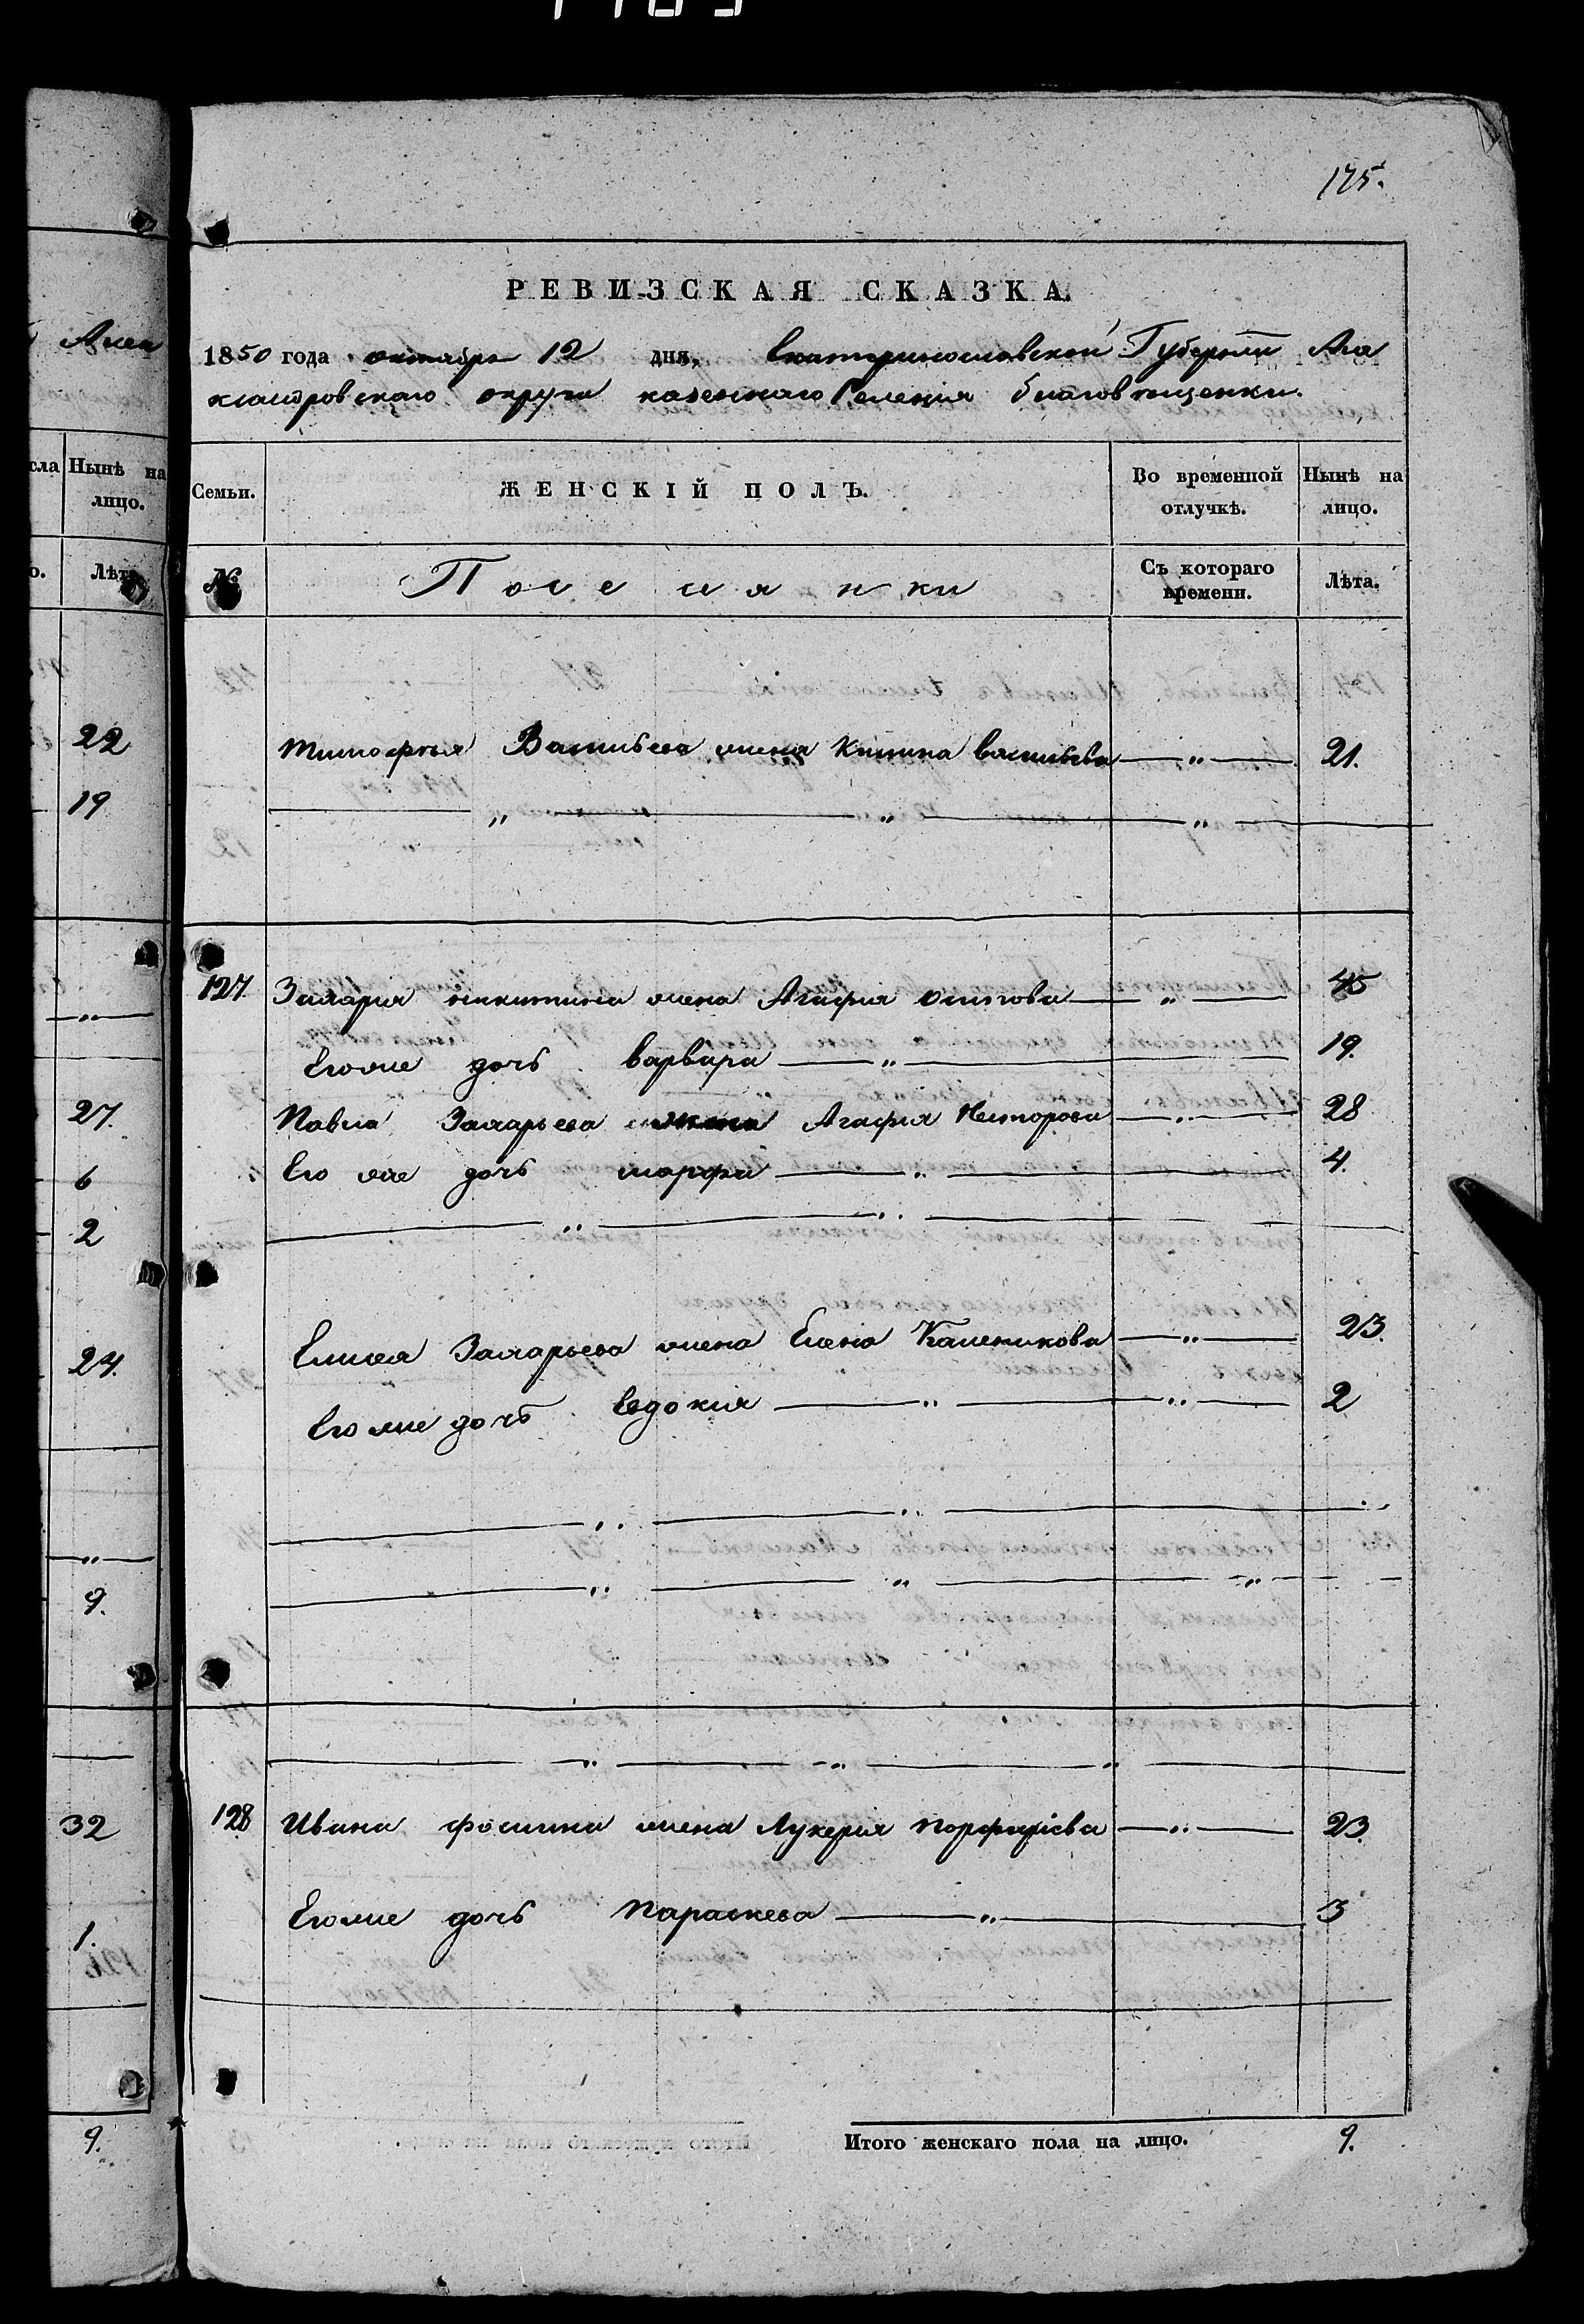 175.
РЕВИЗСКАЯ СКАЗКА.
1850 года октября 12 дня, Екатеринославской Губернии Але
ксандровского округа казенного Селения благовещенки.
Семьи. ЖЕНСКІЙ ПОЛЪ. Во временной отлучкѣ. Нынѣ на лицо.
№ Поселянки Съ котораго времени. Лѣта.
Тимофея Васильева жена Васильева — „ — 21.
127. Захария никитина жена Агафия осипова — „ — 45
Его же дочь варвара — „ — 19.
Павла Захарьева жена Агафия Несторова — „ — 28
Его же дочь марфа — „ — 4.
Елисея Захарьева жена Елена Каленикова — „ — 23.
Его же дочь Евдокия — „ — „ — 2
128 Ивана фомина жена Лукерия порфиріева — „ — 23.
Его же дочь параскева — „ — 3
Итого женскаго пола на лицо. 9.
Алек
сла Нынѣ на лицо.
о. Лѣта
22
19
27.
6
2
24.
9.
32
1.
9.